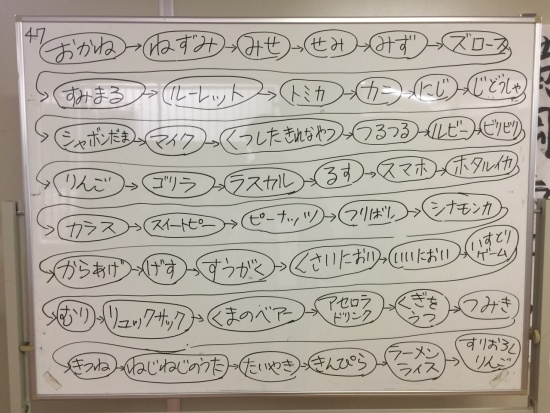 47
おかね→ねずみ→みせ→せみ→みず→ズロース
すみまる→ルーレット→トミカ→カニ→にじ→じどうしゃ
シャボンだま→マイク→くつしたきれなやつ→つるつる→ルビー→ビリビリ
りんご→ゴリラ→ラスカル→るす→スマホ→ホタルイカ
カラス→スイートピー→ピーナッツ→つりばし→シナモンカ
からあげ→げす→すうがく→くさいにおい→いいにおい→いすとりゲーム
むり→リュックサック→くまのベアー→アセロラドリンク→くぎをうつ→つみき
きつね→ねじねじのうた→たいやき→きんぴら→ラーメンライス→すりおろしりんご